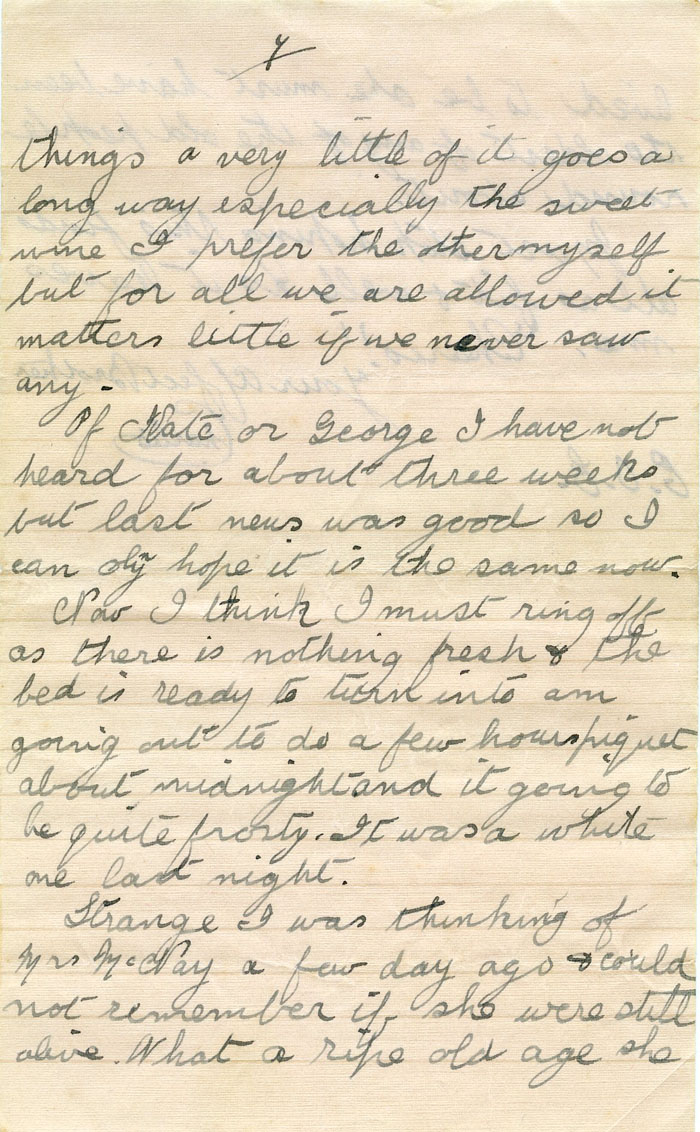 7
things a very little of it goes a
long way especially the sweet
wine I prefer the other myself
but for all we are allowed it
matters little if we never saw
any -
Of Kate or George I have not
heard for about three weeks
but last news was good so I
can oly hope it is the same now.
Now I think I must ring off
as there is nothing fresh & the
bed is ready to turn into am
going out to do a few hours piquet
about midnight and it going to
be quite frosty. It was a white
one last night.
Strange I was thinking of
Mrs McNay a few day ago & could
not remember if she were still
alive. What a ripe old age she